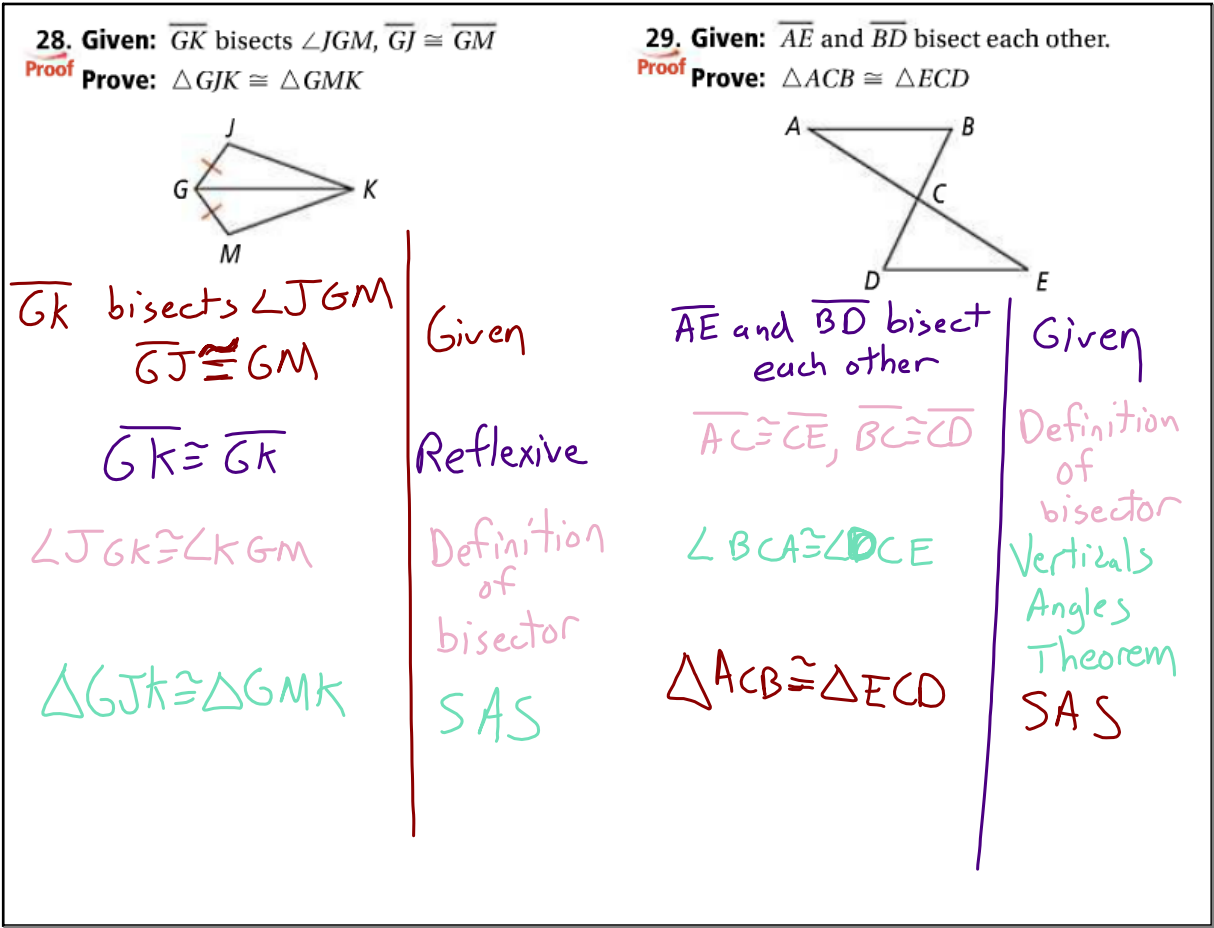 28. Given: G͞K͞ bisects ∠JGM, G͞J͞ ≅ G͞M͞
Proof
Prove: △GJK ≅ △GMK
J
G
K
M
G͞K͞ bisects ∠JGM
G͞J͞ ≅ GM
Given
G͞K͞ ≅ G͞K͞
Reflexive
∠JGK ≅ ∠KGM
Definition
of
bisector
△GJK ≅ △GMK
SAS
29. Given: A͞E͞ and B͞D͞ bisect each other.
Proof
Prove: △ACB ≅ △ECD
A
B
C
D
E
A͞E͞ and B͞D͞ bisect
each other
Given
A͞C͞ ≅ C͞E͞, B͞C͞ ≅ C͞D͞
Definition
of
bisector
∠BCA ≅ ∠DCE
Verticals
Angles
Theorem
△ACB ≅ △ECD
SAS